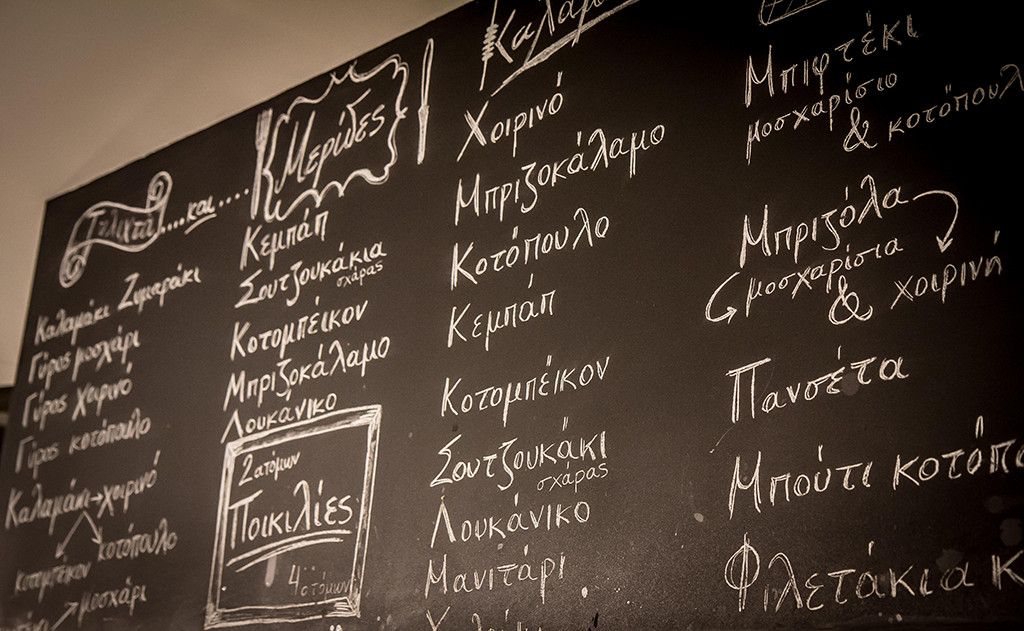 Τυλιχτά....και....
Καλαμάκι Ζυμαράκι
Γύρος μοσχάρι
Γύρος χοιρινό
Γύρος κοτόπουλο
Καλαμάκι → χοιρινό
κοτόπουλο
κοτομπέικον
μοσχάρι
Μερίδες
Κεμπάπ
Σουτζουκάκια
σχάρας
Κοτομπέικον
Μπριζοκάλαμο
Λουκάνικο
2 ατόμων
Ποικιλίες
4 ατόμων
Χοιρινό
Μπριζοκάλαμο
Κοτόπουλο
Κεμπάπ
Κοτομπέικον
Σουτζουκάκι
σχάρας
Λουκάνικο
Μανιτάρι
Μπιφτέκι
μοσχαρίσιο
& κοτόπουλ
Μπριζόλα
μοσχαρίσια
& χοιρινή
Πανσέτα
Μπούτι κοτόπο
Φιλετάκια κ